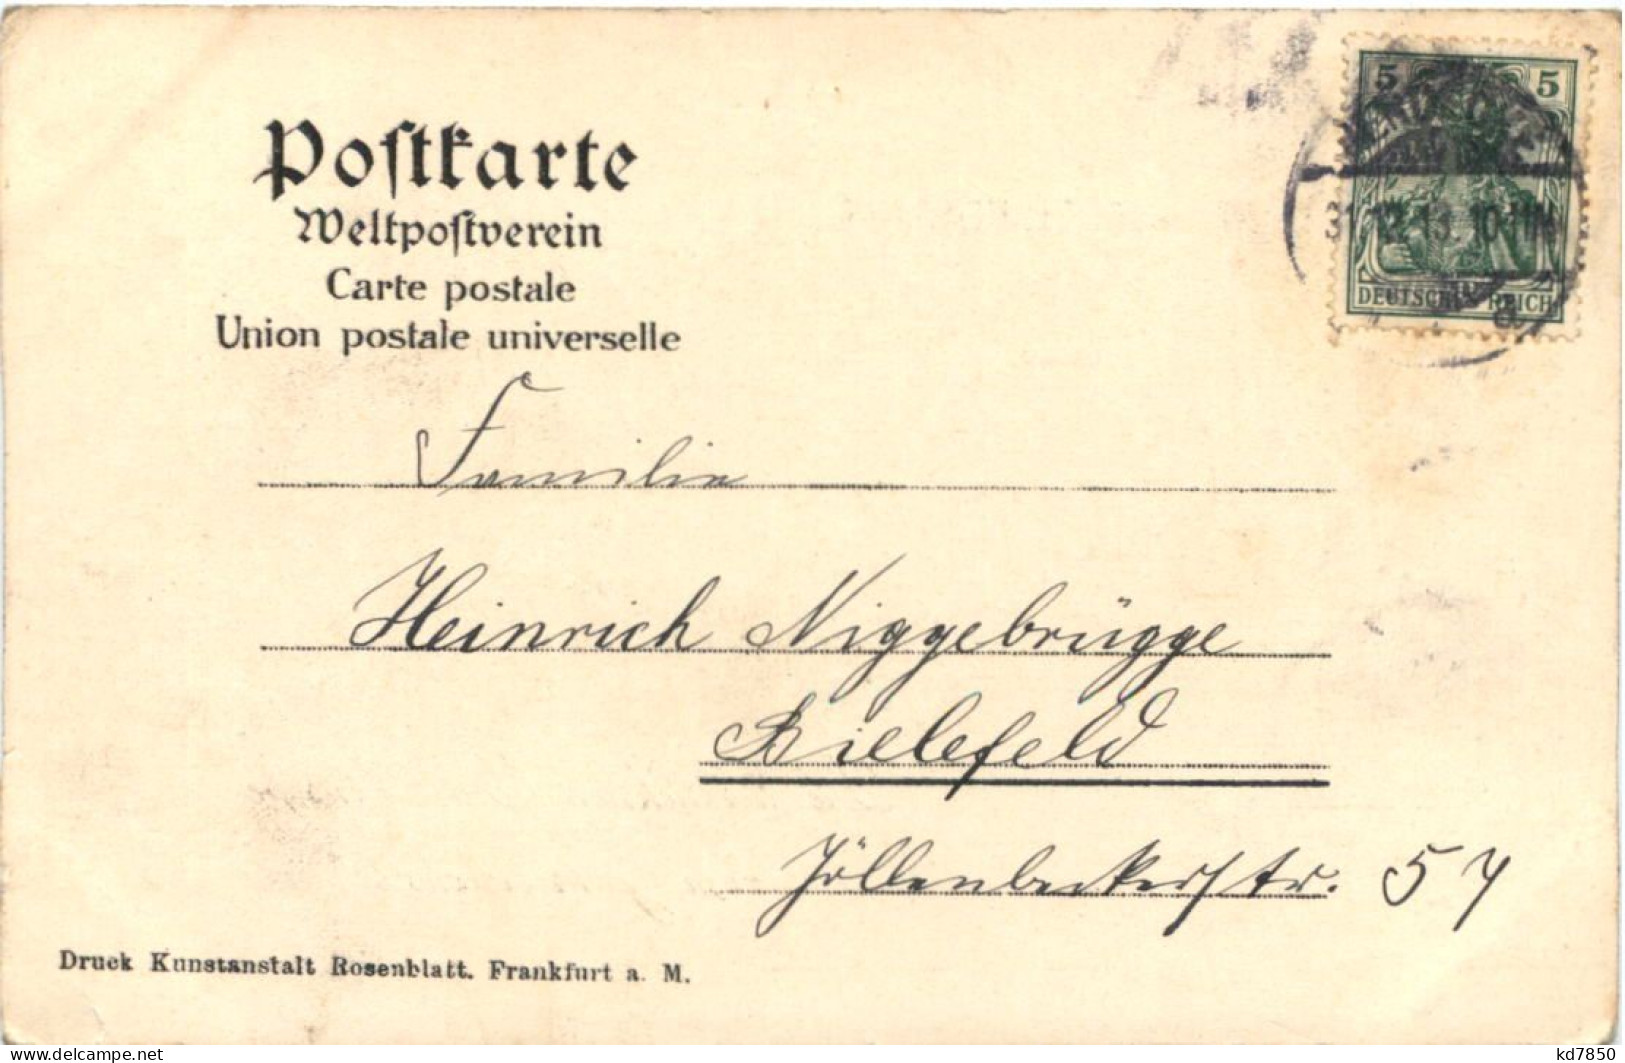 Postkarte
Weltpostverein
Carte postale
Union postale universelle
5 5
31.12.13. 10-11N
DEUTSCHES REICH
Familie
Heinrich Niggebrügge
Bielefeld
Jöllenbeckerstr. 57
Druck Kunstanstalt Rosenblatt. Frankfurt a. M.
www.delcampe.net
kd7850